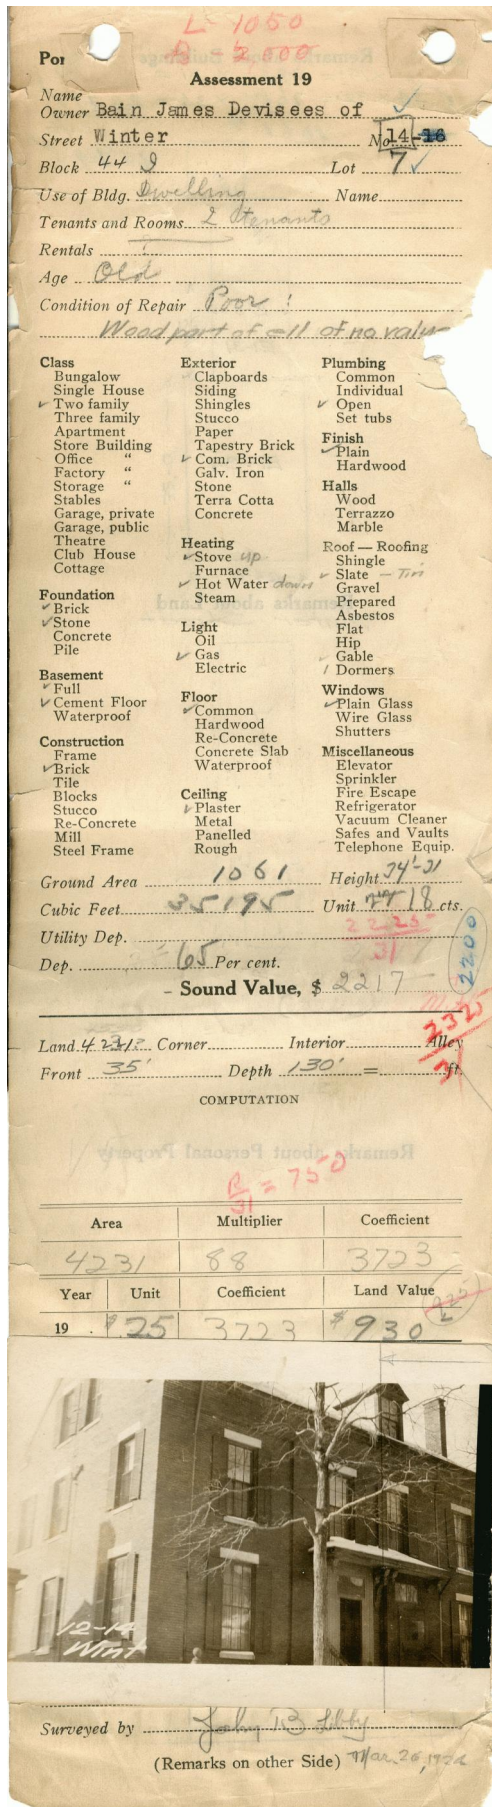 L - 1050
B - 2000
Por
Assessment 19
Name
Owner Bain James Devisees of ✓
Street Winter No 14-16
Block 44 D Lot 7 ✓
Use of Bldg. Dwelling Name
Tenants and Rooms 2 tenants
Rentals
Age Old
Condition of Repair Poor :
Wood part of ell of no value
Class
Bungalow
Single House
✓ Two family
Three family
Apartment
Store Building
Office "
Factory "
Storage "
Stables
Garage, private
Garage, public
Theatre
Club House
Cottage
Foundation
✓ Brick
✓ Stone
Concrete
Pile
Basement
✓ Full
✓ Cement Floor
Waterproof
Construction
Frame
✓ Brick
Tile
Blocks
Stucco
Re-Concrete
Mill
Steel Frame
Exterior
Clapboards
Siding
Shingles
Stucco
Paper
Tapestry Brick
✓ Com. Brick
Galv. Iron
Stone
Terra Cotta
Concrete
Heating
✓ Stove up
Furnace
✓ Hot Water down
Steam
Light
Oil
✓ Gas
Electric
Floor
✓ Common
Hardwood
Re-Concrete
Concrete Slab
Waterproof
Ceiling
✓ Plaster
Metal
Panelled
Rough
Plumbing
Common
Individual
✓ Open
Set tubs
Finish
✓ Plain
Hardwood
Halls
Wood
Terrazzo
Marble
Roof — Roofing
Shingle
✓ Slate - Tin
Gravel
Prepared
Asbestos
Flat
Hip
✓ Gable
1 Dormers
Windows
✓ Plain Glass
Wire Glass
Shutters
Miscellaneous
Elevator
Sprinkler
Fire Escape
Refrigerator
Vacuum Cleaner
Safes and Vaults
Telephone Equip.
Ground Area 1061 Height 34'-31
Cubic Feet 35195 Unit 18 cts.
Utility Dep. 2225
31
Dep. 65 Per cent.
2200
Sound Value, $ 2217
2325
31
Land 4231 Corner Interior Alley
Front 35' Depth 130' = ft.
COMPUTATION
Remarks about Personal Property
B/31 = 750
Area Multiplier Coefficient
4231 88 3723
Year Unit Coefficient Land Value
19 $25 3723 $930
12-14
Wint
Surveyed by John B Libby
(Remarks on other Side) Mar. 26, 1924